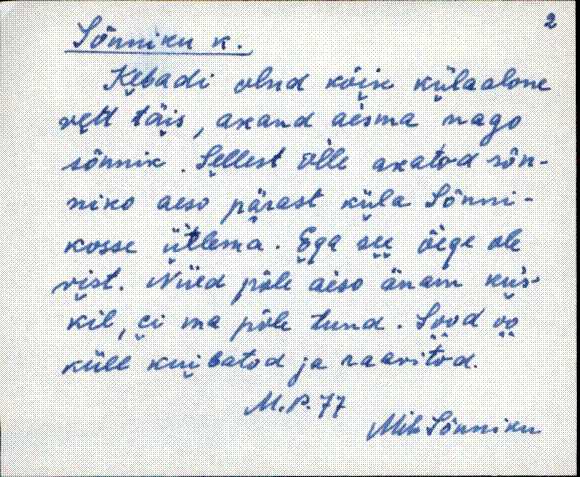 2
Sõnniku k.
Kebadi olnd kõik külaalone
vett täis, akand aesma nago
sõnnik. Sellest olle akatod sõn-
niko aeso pärast küla Sõnni-
kosse ütlema. Ega see õige ole
vist. Nüed põle aeso änam kus-
kil, ei ma põle tund. Sood oo
küll kuibatod ja raavitod.
M.P. 77
Mih Sõnniku